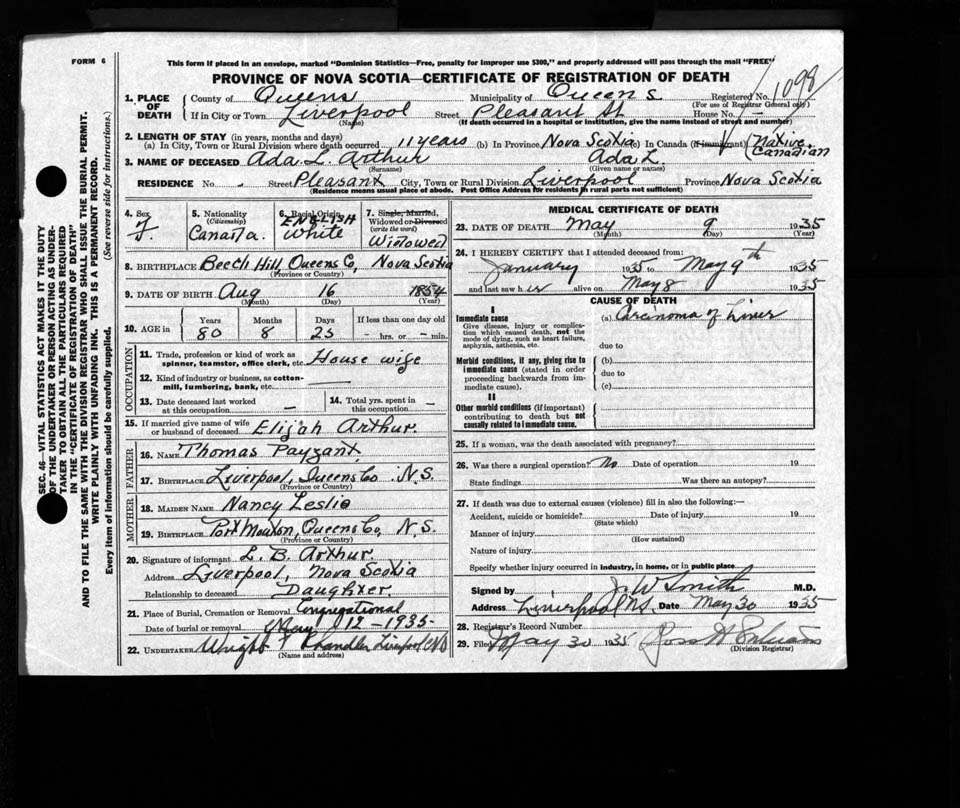 FORM 6
This form if placed in an envelope, marked "Dominion Statistics—Free, penalty for improper use $300," and properly addressed will pass through the mail "FREE"
PROVINCE OF NOVA SCOTIA—CERTIFICATE OF REGISTRATION OF DEATH
1098
1. PLACE OF DEATH County of Queens Municipality of Queens Registered No.
(For use of Registrar General only)
If in City or Town Liverpool Street Pleasant St House No. -
(Name) (If death occurred in a hospital or institution, give the name instead of street and number)
2. LENGTH OF STAY (in years, months and days)
(a) In City, Town or Rural Division where death occurred 11 years (b) In Province Nova Scotia (c) In Canada (if immigrant) (Native Canadian
3. NAME OF DECEASED Ada L. Arthur Ada L.
(Surname) (Given name or names)
RESIDENCE No. - Street Pleasant City, Town or Rural Division Liverpool Province Nova Scotia
(Residence means usual place of abode. Post Office Address for residents in rural parts not sufficient)
4. Sex F.
5. Nationality (Citizenship) Canada.
6. Racial Origin ENGLISH White
7. Single, Married, Widowed or Divorced (write the word) Widowed
8. BIRTHPLACE Beech Hill Queens Co, Nova Scotia
(Province or Country)
9. DATE OF BIRTH Aug 16 1854
(Month) (Day) (Year)
10. AGE in Years Months Days If less than one day old
80 8 23 - hrs. or - min.
OCCUPATION
11. Trade, profession or kind of work as spinner, teamster, office clerk, etc. House wife
12. Kind of industry or business, as cotton-mill, lumbering, bank, etc. —
13. Date deceased last worked at this occupation —
14. Total yrs. spent in this occupation —
15. If married give name of wife or husband of deceased Elijah Arthur.
FATHER
16. NAME Thomas Payzant
17. BIRTHPLACE Liverpool, Queens Co. N.S.
(Province or Country)
MOTHER
18. MAIDEN NAME Nancy Leslie
19. BIRTHPLACE Port Mouton, Queens Co, N.S.
(Province or Country)
20. Signature of informant L. B. Arthur.
Address Liverpool, Nova Scotia
Relationship to deceased Daughter.
21. Place of Burial, Cremation or Removal Congregational
Date of burial or removal May 12-1935-
22. UNDERTAKER Wright Chandler Liverpool NS
(Name and address)
MEDICAL CERTIFICATE OF DEATH
23. DATE OF DEATH May 9 1935
(Month) (Day) (Year)
24. I HEREBY CERTIFY that I attended deceased from:
January 1935 to May 9th 1935
and last saw her alive on May 8 1935
CAUSE OF DEATH
I
Immediate cause
Give disease, injury or complication which caused death, not the mode of dying, such as heart failure, asphyxia, asthenia, etc.
(a) Carcinoma of Liver
due to
Morbid conditions, if any, giving rise to immediate cause (stated in order proceeding backwards from immediate cause).
(b)
due to
(c)
II
Other morbid conditions (if important) contributing to death but not causally related to immediate cause.
25. If a woman, was the death associated with pregnancy?
26. Was there a surgical operation? No Date of operation 19
State findings Was there an autopsy?
27. If death was due to external causes (violence) fill in also the following:—
Accident, suicide or homicide? Date of injury 19
(State which)
Manner of injury
(How sustained)
Nature of injury
Specify whether injury occurred in Industry, in home, or in public place
Signed by J. W Smith M.D.
Address Liverpool NS. Date May 30 1935
28. Registrar's Record Number
29. Filed May 30 1935
(Division Registrar)
SEC. 46—VITAL STATISTICS ACT MAKES IT THE DUTY
OF THE UNDERTAKER OR PERSON ACTING AS UNDER-
TAKER TO OBTAIN ALL THE PARTICULARS REQUIRED
IN THE "CERTIFICATE OF REGISTRATION OF DEATH"
AND TO FILE THE SAME WITH THE DIVISION REGISTRAR WHO SHALL ISSUE THE BURIAL PERMIT.
WRITE PLAINLY WITH UNFADING INK. THIS IS A PERMANENT RECORD.
Every item of information should be carefully supplied. (See reverse side for instructions.)